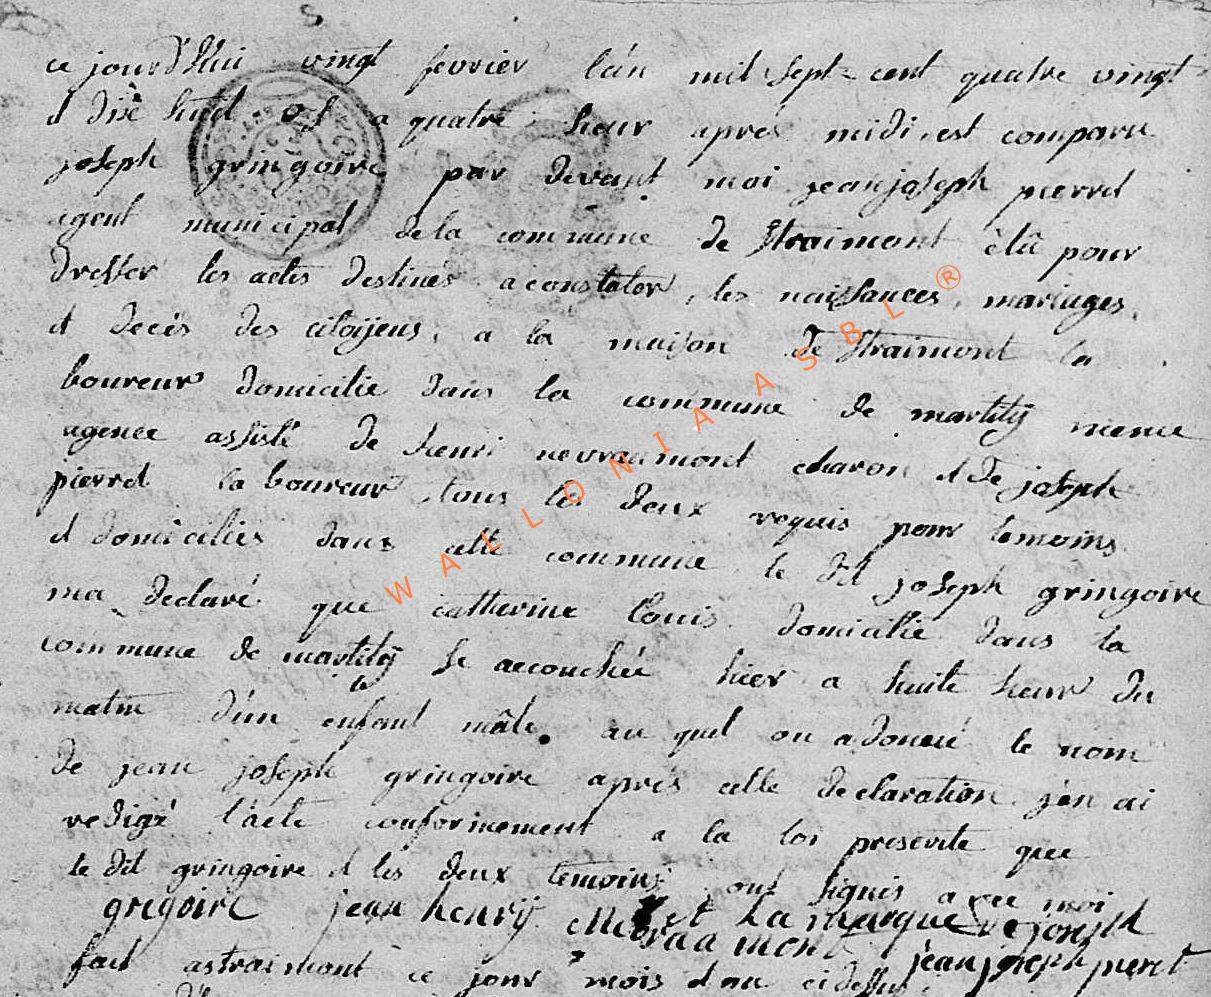 ce jourd'hui vingt fevrier l'an mil sept cent quatre vingt
et dixe huit a quatre heur apres midi est comparu
joseph gringoire par devant moi jean joseph pierret
agent municipal de la commune de straimont élû pour
dresser les actes destinés a constater les naissances, mariages,
et decés des citoijens, a la maison de straimont la
boureur domicilié dans la commune de martilij meme
agence assisté de henri nevraumont charon et de joseph
pierret la boureur tous les deux requis pour temoins
et domiciliés dans cette commune le dit joseph gringoire
ma declaré que catherine louis domicilié dans la
commune de martilij se accouchée hier a huite heur du
matin d'un enfant mâle au quel on a donné le nom
de jean joseph gringoire aprés cette declaration j'en ai
redigé l'acte conformement a la loi presente que
le dit gringoire et les deux temoins ont signés avec moi
gregoire jean henrij Nevraumont et la marque de joseph
jean joseph pieret
fait a straimont ce jour mois et an ci dessus
WALLONIA ASBL ®